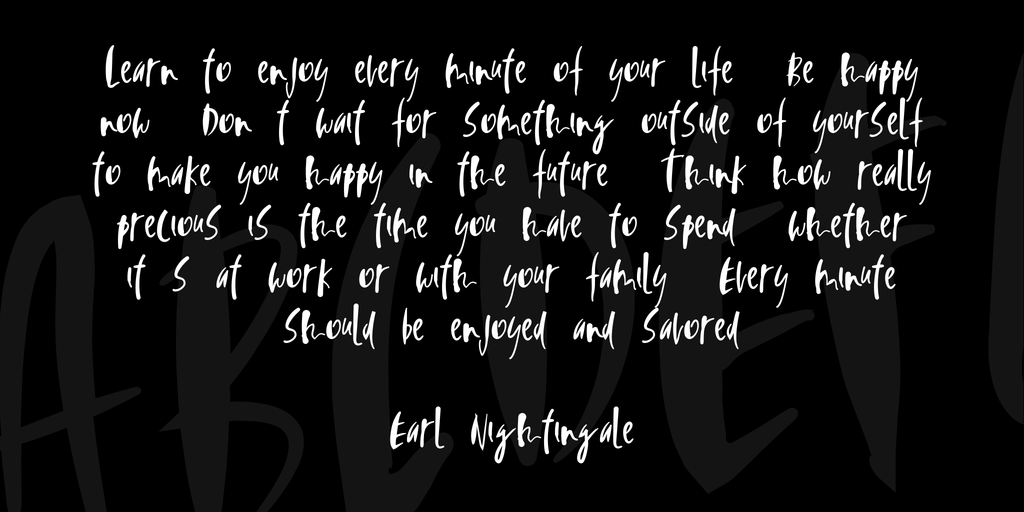 Learn to enjoy every minute of your life Be happy
now Don t wait for something outside of yourself
to make you happy in the future Think how really
precious is the time you have to spend whether
it s at work or with your family Every minute
should be enjoyed and savored
Earl Nightingale
ABCDEF